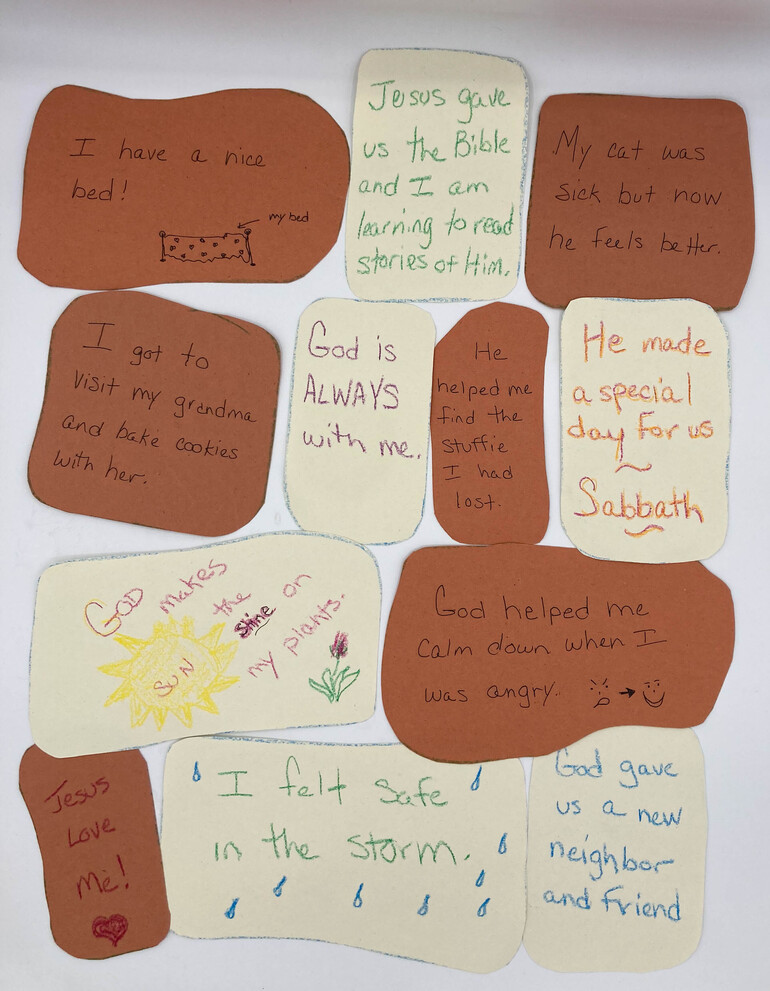 I have a nice
bed!
my bed
Jesus gave
us the Bible
and I am
learning to read
stories of Him.
My cat was
sick but now
he feels better.
I got to
visit my grandma
and bake cookies
with her.
God is
ALWAYS
with me.
He
helped me
find the
stuffie
I had
lost.
He made
a special
day for us
~
Sabbath
GOD makes
the
SUN
shine on
my plants.
God helped me
calm down when I
was angry.
Jesus
Love
Me!
I felt safe
in the storm.
God gave
us a new
neighbor
and friend